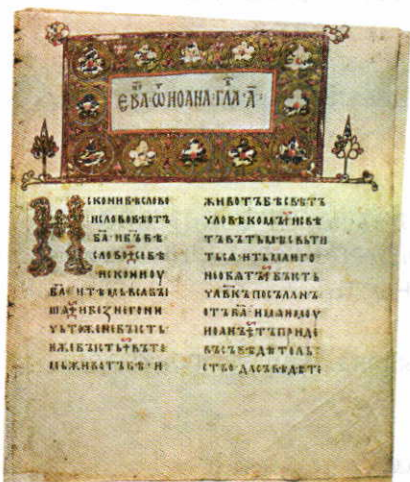 ЕВⷢ҇А ѾИОАНА ГЛА · А҃ ·
ИСКОНИБѢСЛОВО
ИСЛОВОБѢОТЪ
Б҃А · ИБ҃ЪБѢ
СЛОВО СЕБѢ
ИСКОНИОУ
Б҃А · ИТѢМЬВЬСАБЫ
ША ИБЕЗНЕГОНИ
ЧЬТОЖЕНЕБЫСТЬ ·
ИЖЕБЫСТЬ ВЪТО
МЬЖИВОТЪБѢ · И
ЖИВОТЪБѢСВѢТЪ
ЧЛОВѢКОМЪ ИСВѢ
ТЪВЪТЬМѢСВЬТИ
ТЬСѦ · ИТЬМАѤГО
НЕОБѦТЪ БЫСТЬ
ЧЛ҃ВКЪПОСЪЛАНЪ
ОТЪБ҃А · ИМѦѤМОУ
ИОАНЪ ТЪПРИДЕ
ВЪСЪВѢДѢТЕЛЬ
СТВО · ДАСЪВѢДѢТЕ